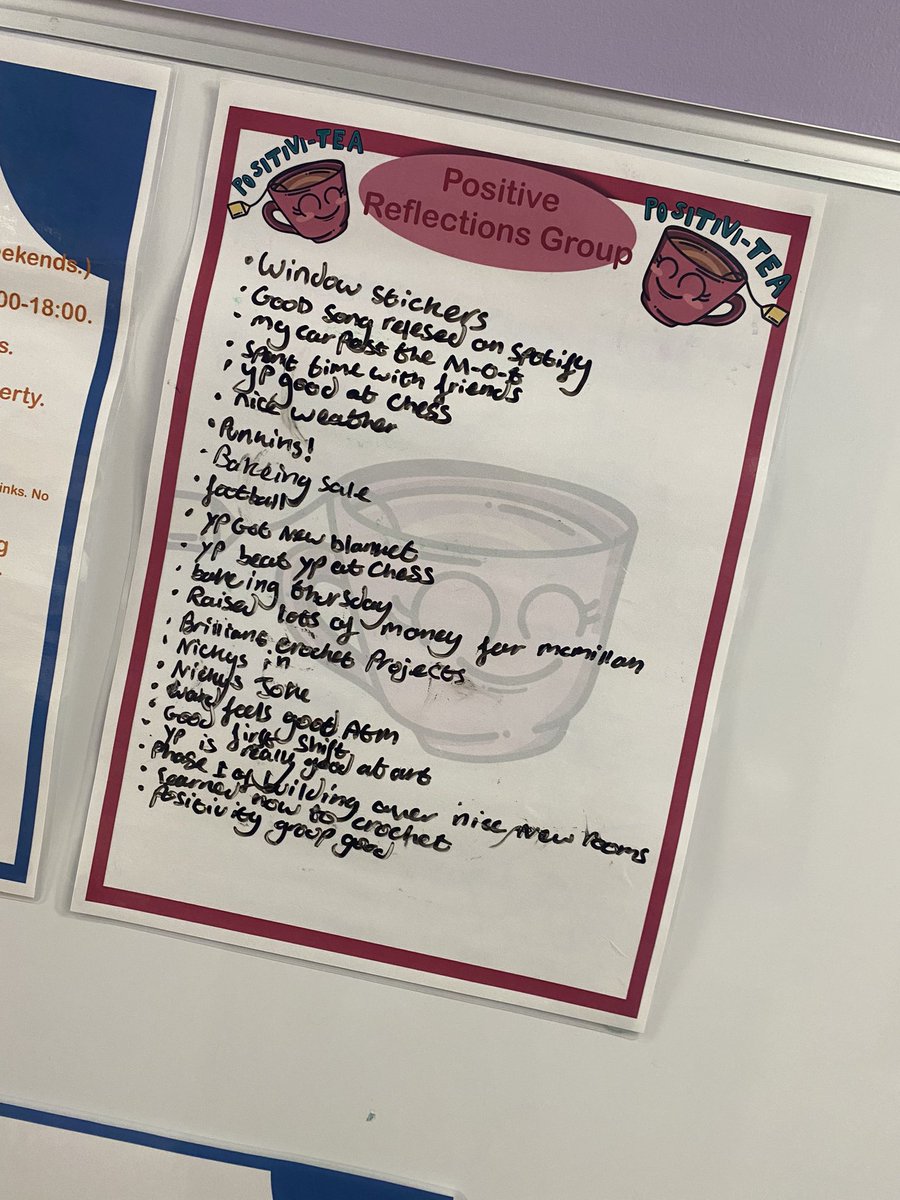 eekends.)
00-18:00.
s.
erty.
inks. No
g
POSITIVI-TEA
POSITIVI-TEA
Positive
Reflections Group
• Window stickers
• GOOD song relesed on spotify
• my car past the M-O-t
• spent time with friends
• YP good at chess
• nice weather
• Punnins!
• Bakeing sale
• football
• YP Got New blanket
• YP beat YP at chess
• bakeing thursday
• Raised lots of money for mcmillan
• Brilliant crochet Projects
• Nickys in
• Nickys Joke
• ward feels good ATM
• Good first shift
• YP is really good at art
• Phase 1 of building over nice, new Rooms
• learned how to crochet
• Positivity group good